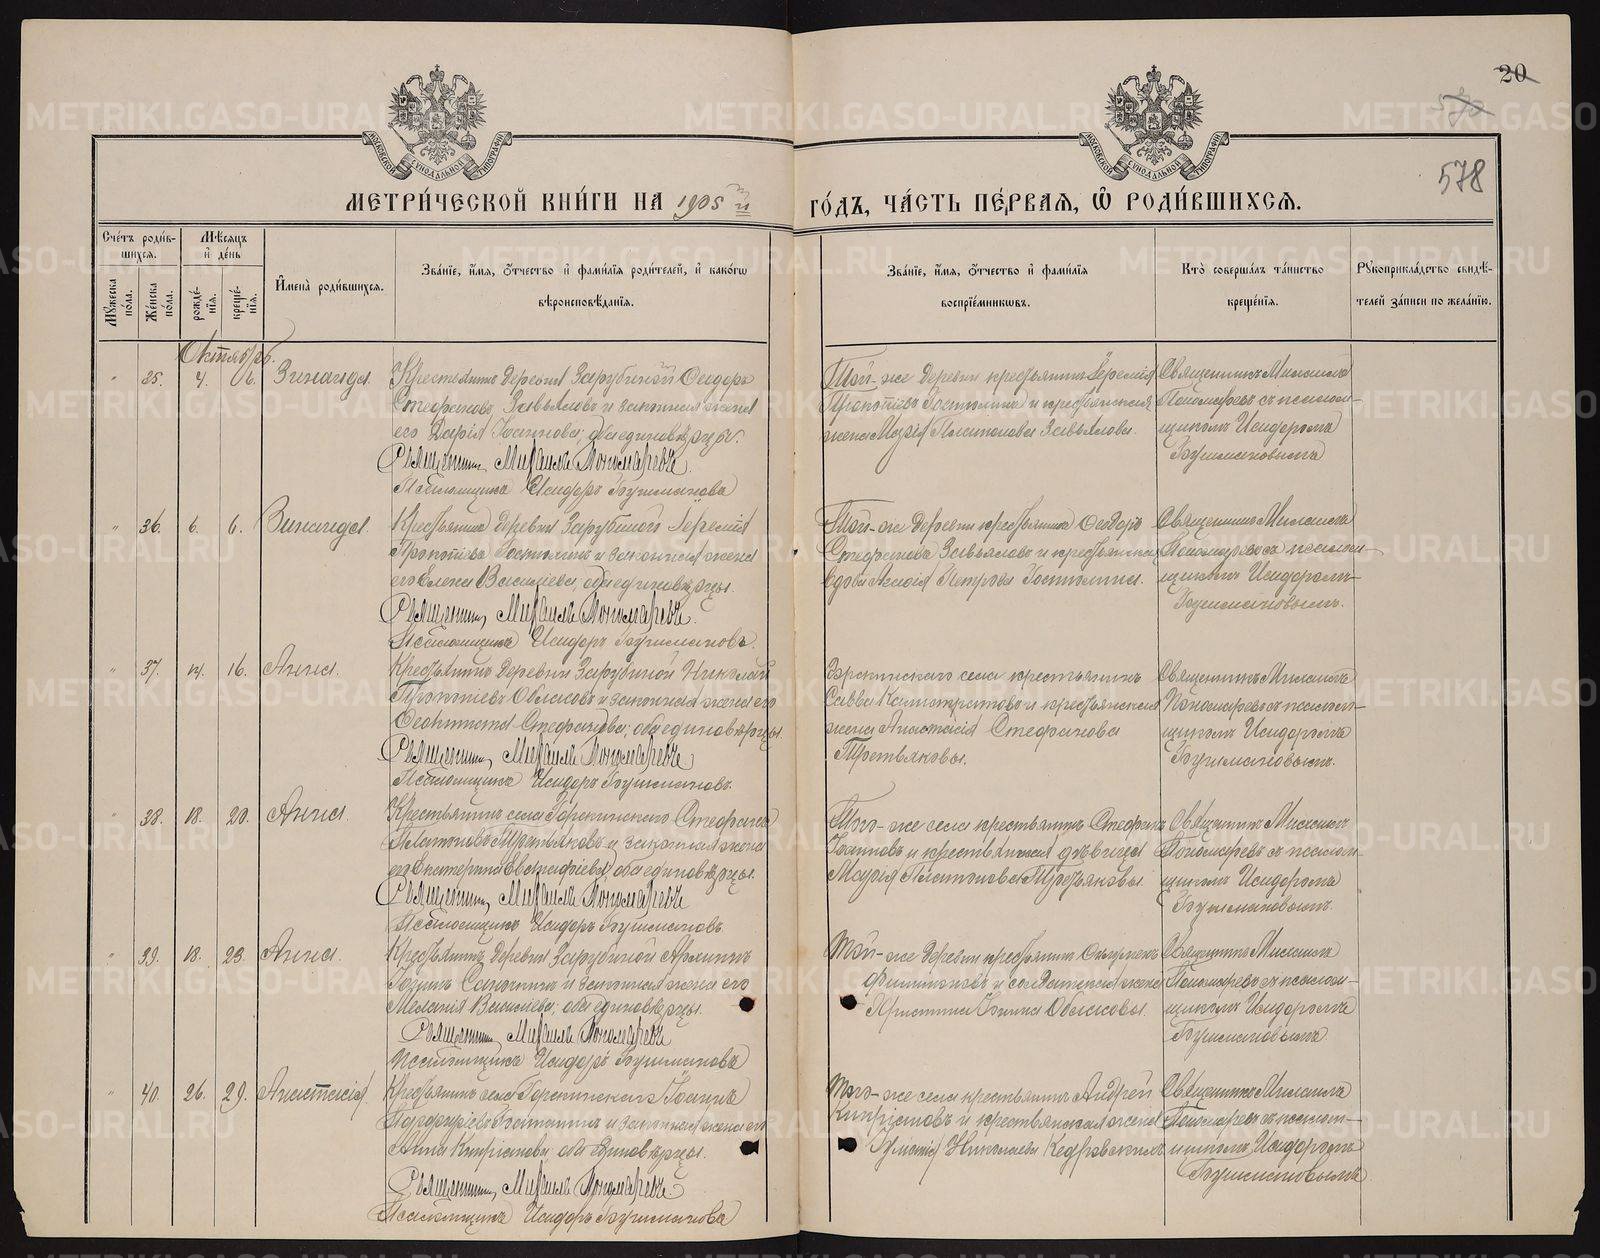 20
578
МОСКОВСКОЙ СѴНОДАЛЬНОЙ ТИПОГРАФІИ
МОСКОВСКОЙ СѴНОДАЛЬНОЙ ТИПОГРАФІИ
МЕТРИ́ЧЕСКОЙ КНИ́ГИ НА 1905 й ГО́ДЪ, ЧА́СТЬ ПЕ́РВАЯ, Ѡ РОДИ́ВШИХСЯ.
Сче́тъ роди́в-
шихся.
Мѣсяцъ
и де́нь
Мужеска по́ла.
Же́нска по́ла.
рожде́-
нія.
креще́-
нія.
И́мена роди́вшихся.
Зва́ніе, и́мя, о́тчество и фами́лія роди́телей, и како́гѡ
вѣроисповѣ́данія.
Зва́ніе, и́мя, о́тчество и фами́лія
воспріе́мниковъ.
Кто̀ соверша́лъ та́инство
креще́нія.
Рукоприкла́дство свидѣ́-
телей за́писи по жела́нію.
Октябрь.
" 35. 4. 6. Зинаида.
Крестьянинъ деревни Зарубиной Ѳеодоръ
Стефановъ Завьяловъ и законная жена
его Дарія Іоаннова; оба единовѣрцы.
Священникъ Михаилъ Пономаревъ
Псаломщикъ Исидоръ Бушмановъ
Той-же деревни крестьянинъ Іеремія
Прокопіевъ и крестьянская
жена Марія Платонова Завьялова.
Священникъ Михаилъ
Пономаревъ съ псалом-
щикомъ Исидоромъ
Бушмановымъ
" 36. 6. 6. Зинаида.
Крестьянинъ деревни Зарубиной Іеремія
Прокопіевъ и законная жена
его Елена Василіева; оба единовѣрцы.
Священникъ Михаилъ Пономаревъ.
Псаломщикъ Исидоръ Бушмановъ.
Той-же деревни крестьянинъ Ѳеодоръ
Стефановъ Завьяловъ и крестьянская
вдова Петрова
Священникъ Михаилъ
Пономаревъ съ псалом-
щикомъ Исидоромъ
Бушмановымъ.
" 37. 14. 16. Анна.
Крестьянинъ деревни Зарубиной Николай
Прокопіевъ и законная жена его
Стефанова; оба единовѣрцы.
Священникъ Михаилъ Пономаревъ
Псаломщикъ Исидоръ Бушмановъ.
села крестьянинъ
Савва Калистратовъ и крестьянская
жена Анастасія Стефанова
Третьяковы.
Священникъ Михаилъ
Пономаревъ съ псалом-
щикомъ Исидоромъ
Бушмановымъ.
" 38. 18. 20. Анна.
Крестьянинъ села Стефанъ
Платоновъ Третьяковъ и законная жена
его Екатерина Евстафіева; оба единовѣрцы.
Священникъ Михаилъ Пономаревъ
Псаломщикъ Исидоръ Бушмановъ.
Того-же села крестьянинъ Стефанъ
Іоанновъ и крестьянская дѣвица
Марія Платонова Третьяковы.
Священникъ Михаилъ
Пономаревъ съ псалом-
щикомъ Исидоромъ
Бушмановымъ.
" 39. 18. 23. Анна.
Крестьянинъ деревни Зарубиной
и законная жена его
Меланія Василіева; оба единовѣрцы.
Священникъ Михаилъ Пономаревъ
Псаломщикъ Исидоръ Бушмановъ
Той-же деревни крестьянинъ
и солдатская жена
Христина
Священникъ Михаилъ
Пономаревъ съ псалом-
щикомъ Исидоромъ
Бушмановымъ
" 40. 26. 29. Анастасія.
Крестьянинъ села Іоаннъ
Порфиріевъ и законная жена его
Анна Кипріанова; оба единовѣрцы.
Священникъ Михаилъ Пономаревъ
Псаломщикъ Исидоръ Бушмановъ
Того-же села крестьянинъ Андрей
Кипріановъ и крестьянская жена
Николаева
Священникъ Михаилъ
Пономаревъ съ псалом-
щикомъ Исидоромъ
Бушмановымъ.
METRIKI.GASO-URAL.RU